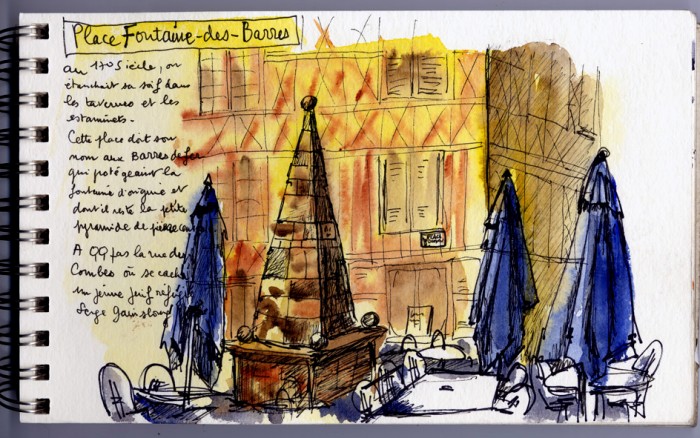 Place Fontaine-des-Barres
au 17°Siècle, on
étanchait sa soif dans
les tavernes et les
estaminets.
Cette place doit son
nom aux Barres de fer
qui protégeaient la
fontaine d'origine et
dont il reste la petite
pyramide de
A QQ pas la rue des
Combes où se cach
un jeune juif réfug
Serge Gainsbourg